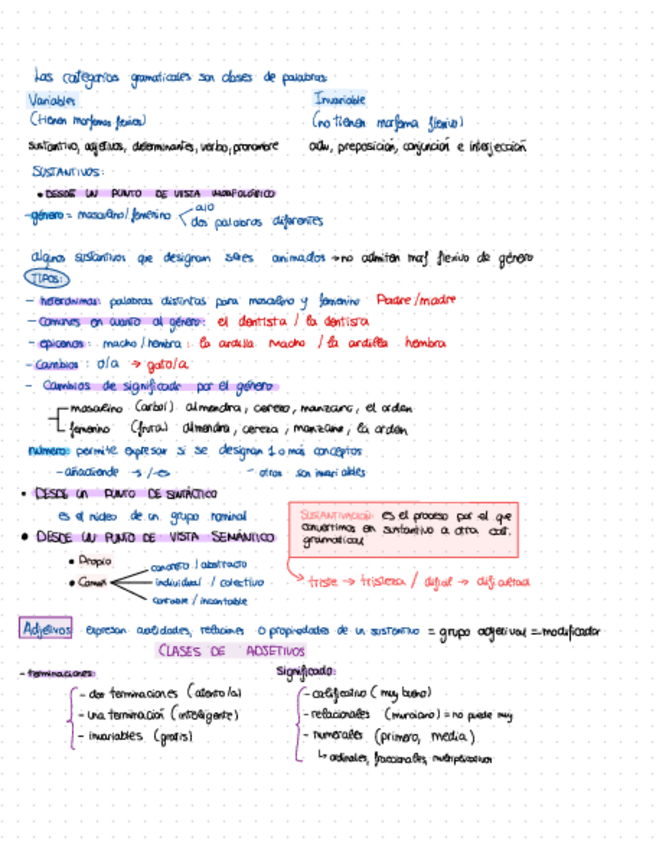 Las categorías gramaticales son clases de palabras
Variables
Invariable
(tienen morfemas flexivos)
(no tienen morfema flexivo)
sustantivo, adjetivos, determinantes, verbo, pronombre
adv, preposición, conjunción e interjección
SUSTANTIVOS:
• DESDE UN PUNTO DE VISTA MORFOLÓGICO
-género = masculino/femenino
a/o
dos palabras diferentes
algunos sustantivos que designan seres animados → no admiten morf flexivo de género
TIPOS:
- heterónimas: palabras distintas para masculino y femenino Padre/madre
- comunes en cuanto al género: el dentista / la dentista
- epicenos: macho/hembra: la ardilla macho / la ardilla hembra
- Cambios: o/a → gato/a
- Cambios de significado por el género
masculino (árbol) almendro, cerezo, manzano, el orden
femenino (fruta) almendra, cereza, manzana, la orden
número: permite expresar si se designan 1 o más conceptos
- añadiendo -s /-es
- otros son invariables
• DESDE UN PUNTO DE SINTÁCTICO
es el núcleo de un grupo nominal
SUSTANTIVACIÓN: es el proceso por el que
convertimos en sustantivo a otra cat.
gramatical
• DESDE UN PUNTO DE VISTA SEMÁNTICO
• Propio
• Común
concreto / abstracto
individual / colectivo
contable / incontable
triste → tristeza / difícil → dificultad
Adjetivos expresan cualidades, relaciones o propiedades de un sustantivo = grupo adjetival = modificador
CLASES DE ADJETIVOS
- terminaciones:
Significado:
- dos terminaciones (atento/a)
- una terminación (inteligente)
- invariables (gratis)
- calificativo (muy bueno)
- relacionales (murciano) = no puede muy
- numerales (primero, media)
↳ ordinales, fraccionales, multiplicativos